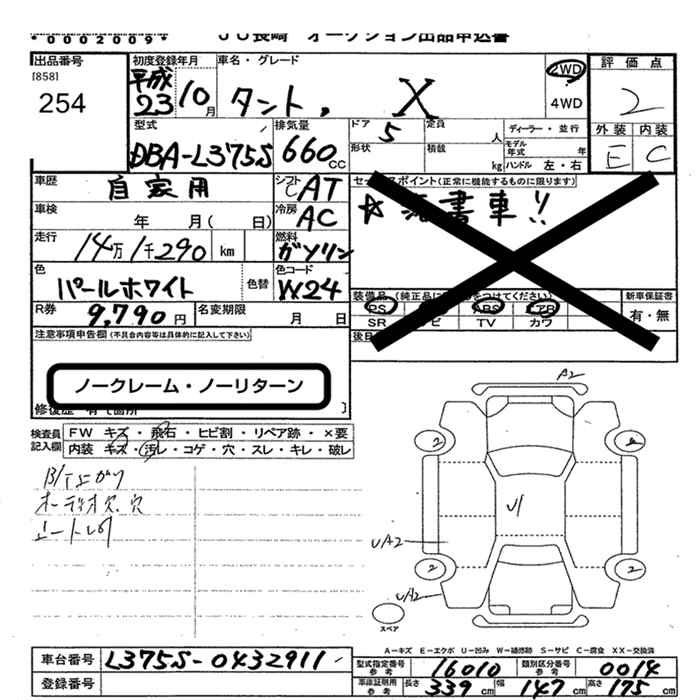 *0002009*
JU長崎 オークション出品申込書
出品番号
[858]
254
初度登録年月
平成
23 10月
車名・グレード
タント, X
2WD
4WD
評価点
2
外装 内装
E C
型式
DBA-L375S
排気量
660 CC
ドア
5
定員
人
形状
積載
kg
ディーラー・並行
モデル年式
年
ハンドル 左・右
車歴
自家用
シフト
AT
車検
年 月( 日)
冷房
AC
走行
14万1千290 km
燃料
ガソリン
色
パールホワイト
色替
色コード
W24
R券
9,790円
名変期限
月 日
セールスポイント(正常に機能するものに限ります)
装備品
PS
ABS
エアB
SR
TV
カワ
新車保証書
有・無
注意事項申告欄(不具合内容等は具体的に記入して下さい)
ノークレーム・ノーリターン
検査員記入欄
FW キズ・飛石・ヒビ割・リペア跡・×要
内装 キズ・汚レ・コゲ・穴・スレ・キレ・破レ
A2
2
2
U1
UA2
2
2
UA2
スペア
A-キズ E-エクボ U-凹み W-補修跡 S-サビ C-腐食 XX-交換済
車台番号
L375S-0432911
登録番号
型式指定番号
参考
16010
類別区分番号
参考
0014
車庫証明用
参考
長さ 339 cm 幅 147 cm 高さ 175 cm